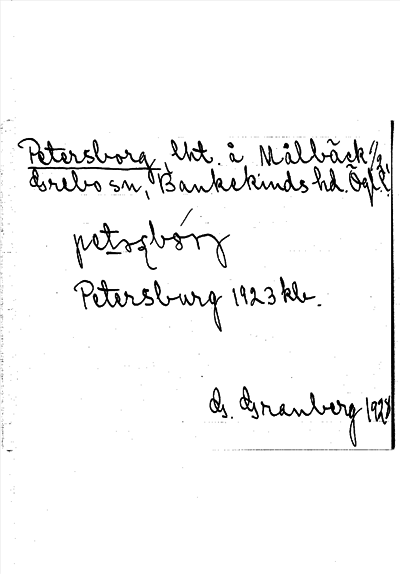 Petersborg, lht. å Målbäck 1/2,
Grebo sn, Bankekinds hd. Ögl.
Petersburg 1923 kb.
G. Granberg 1928